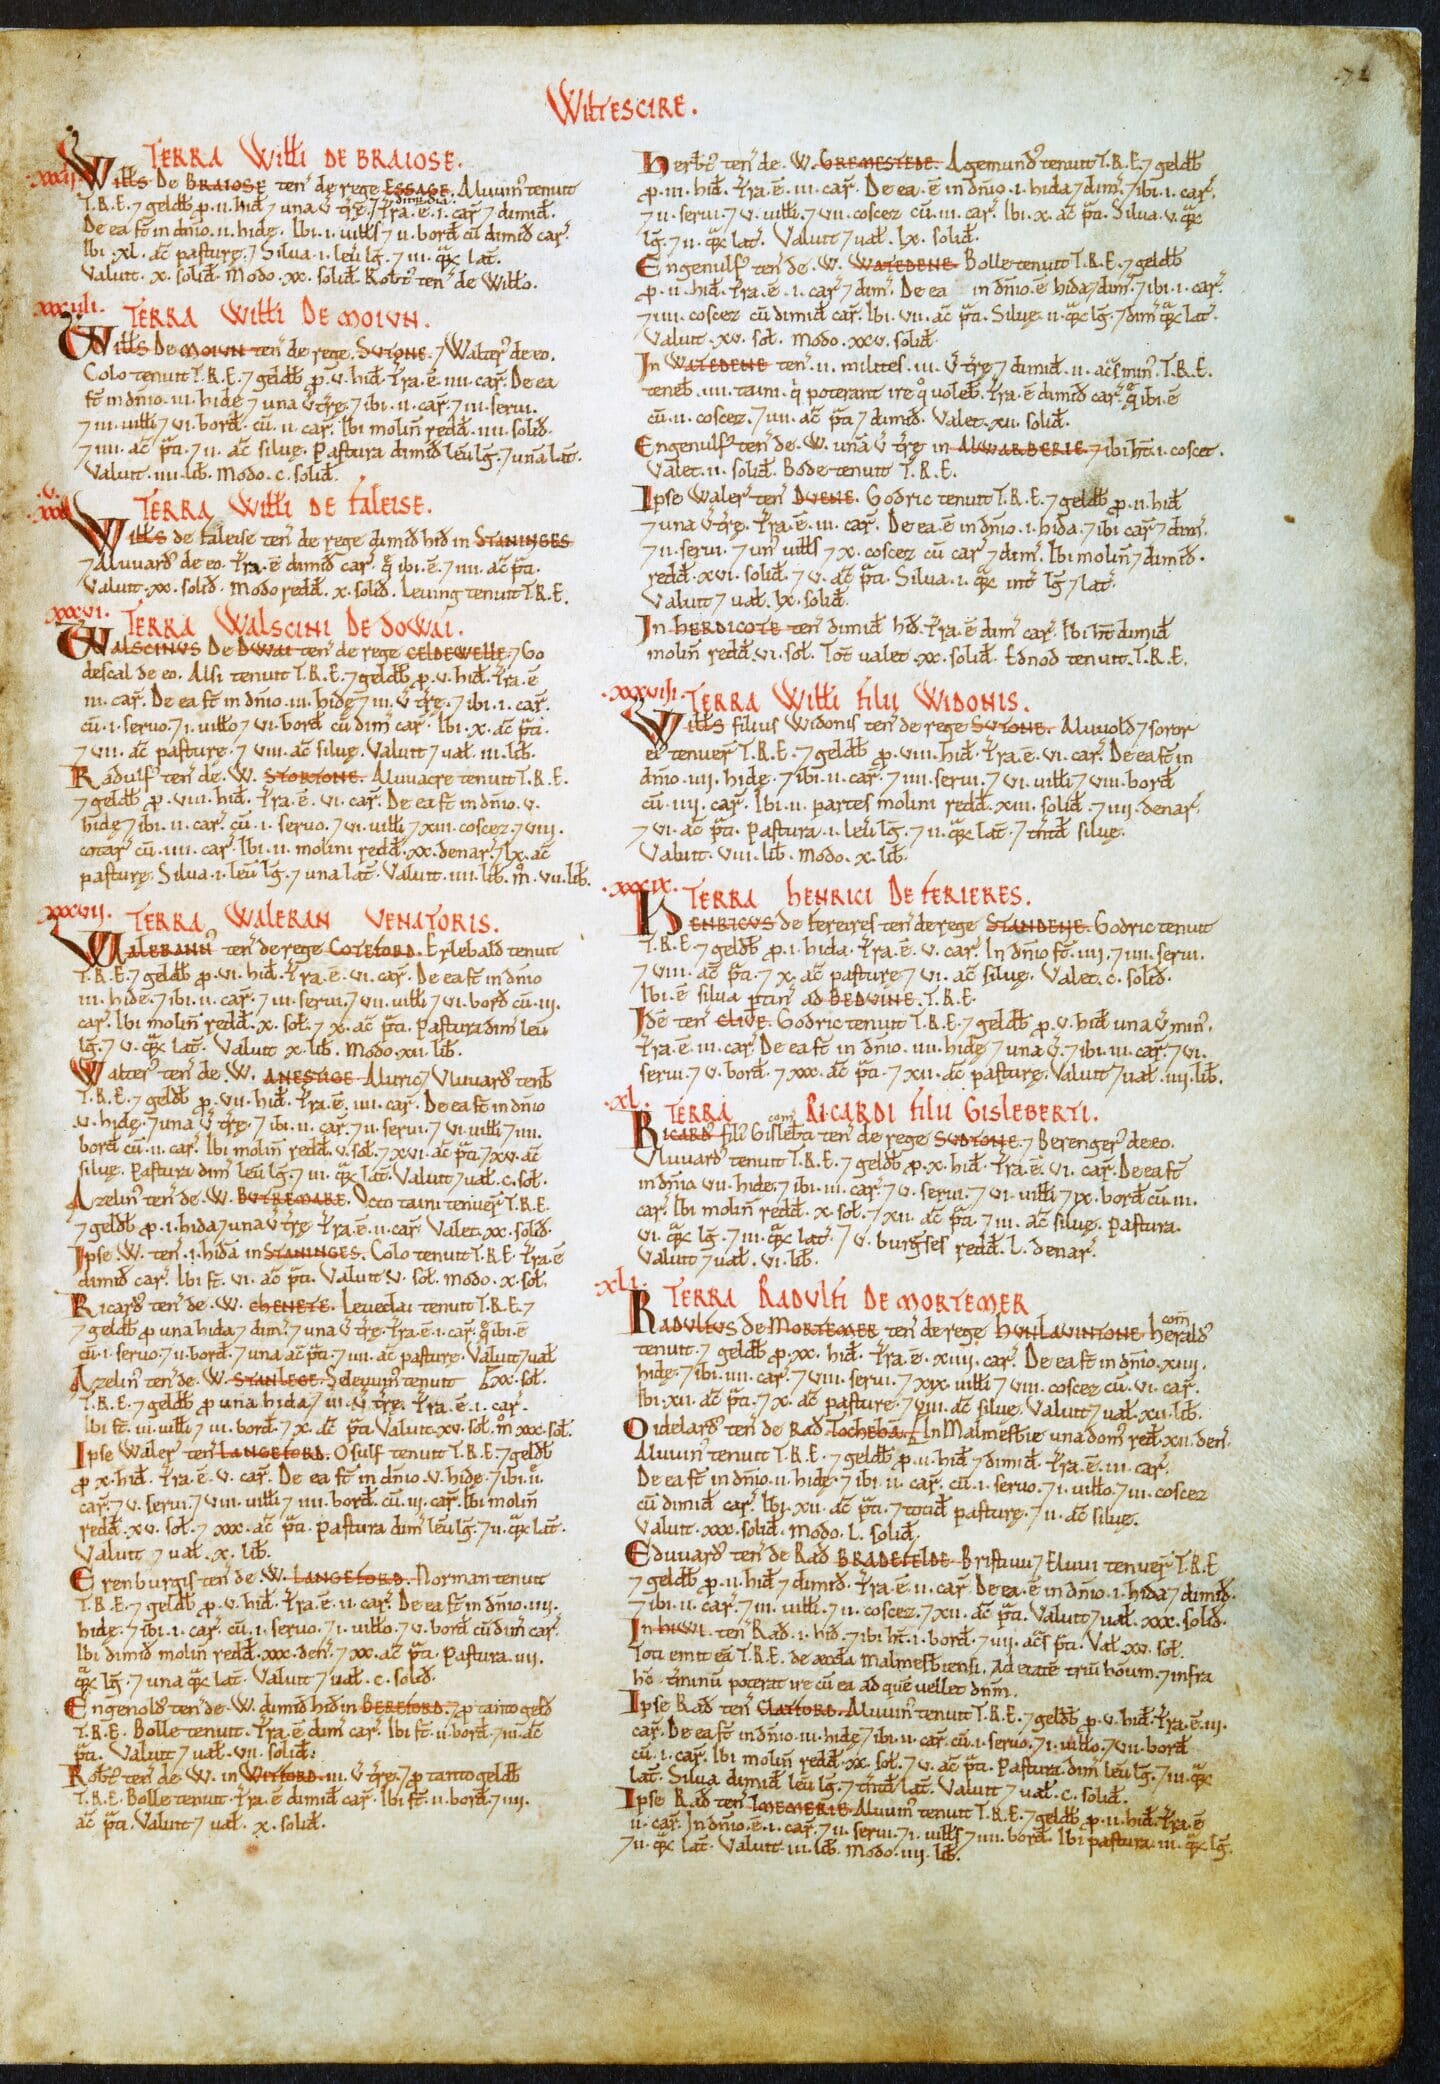 72
WILTESCIRE.
TERRA Willi DE BRAIOSE.
xxxiii. WillS De BRAIOSE ten' de rege ESSAGE. Aluuin' tenuit
T.R.E. ⁊ geldb p. ii. hid ⁊ una v̄ træ ⁊ dimidia. Tra. ē. i. car ⁊ dimid.
De ea st in dnio. ii. hidę. Ibi. i. uills ⁊ ii. bord cū dimid car.
Ibi. xl. ac pasturę. ⁊ Silua. i. leu lg. ⁊ iii. qrz lat.
Valuit. x. solid. Modo. xx. solid. Robt' ten' de Willo.
xxxiiii. TERRA Willi DE MOIUN.
Wills De MOIUN ten' de rege. SUTONE. ⁊ Walter' de eo.
Colo tenuit T.R.E. ⁊ geldb p. v. hid. Tra. ē. iiii. car. De ea
st in dnio. iii. hidę ⁊ una v̄ træ. ⁊ ibi. ii. car. ⁊ iii. serui.
⁊ iii. uilli ⁊ vi. bord. cū. ii. car. Ibi molin redd. iiii. solid.
⁊ iiii. ac pti. ⁊ ii. ac siluę. Pastura dimid leu lg. ⁊ una lat.
Valuit. iiii. lib. Modo. c. solid.
xxxv. TERRA Willi DE faleise.
Wills de faleise ten' de rege dimid hid in STANINGES
⁊ Aluuard' de eo. Tra. ē dimid car. q ibi. ē. ⁊ iiii. ac pti.
Valuit. xx. solid. Modo redd. x. solid. Leuing tenuit T.R.E.
xxxvi. TERRA WALSCINI DE DOWAI.
WALSCINUS De DWAI ten' de rege CELDEWELLE. ⁊ Go
descal de eo. Alsi tenuit T.R.E. ⁊ geldb p. v. hid. Tra. ē
iii. car. De ea st in dnio. iii. hidę ⁊ iii. v̄ træ. ⁊ ibi. i. car.
cū. i. seruo. ⁊ i. uillo ⁊ vi. bord cū dim car. Ibi. x. ac pti.
⁊ vii. ac pasturę. ⁊ viii. ac siluę. Valuit ⁊ ual. iii. lib.
Radulf' ten' de. W. STORTONE. Aluuacre tenuit T.R.E.
⁊ geldb p. viii. hid. Tra. ē. vi. car. De ea st in dnio. v.
hidę ⁊ ibi. ii. car. cū. i. seruo. ⁊ vi. uilli ⁊ xiii. coscez. ⁊ viii.
cotar' cū. iiii. car. Ibi. ii. molini redd. xx. denar. ⁊ lx. ac
pasturę. Silua. i. leu lg. ⁊ una lat. Valuit. iiii. lib. m̊. vii. lib.
xxxvii. TERRA WALERAN VENATORIS.
WALERANN' ten' de rege COTEFORD. Erlebald tenuit
T.R.E. ⁊ geldb p. vi. hid. Tra. ē. vi. car. De ea st in dnio
iii. hidę. ⁊ ibi. ii. car. ⁊ iii. serui. ⁊ vii. uilli ⁊ vi. bord cū. iii.
car. Ibi molin redd. x. sol. ⁊ x. ac pti. Pastura dim leu
lg. ⁊ v. qrz lat. Valuit x. lib. Modo. xii. lib.
Walter' ten' de. W. ANESTIGE. Aluric ⁊ Vluuard' tenb
T.R.E. ⁊ geldb p. vii. hid. Tra. ē. iiii. car. De ea st in dnio
v. hidę. ⁊ una v̄ træ. ⁊ ibi. ii. car. ⁊ ii. serui. ⁊ vi. uilli ⁊ iiii.
bord cū. ii. car. Ibi molin redd. v. sol. ⁊ xvi. ac pti. ⁊ xv. ac
siluę. Pastura dim leu lg. ⁊ iii. qrz lat. Valuit ⁊ ual. c. sol.
Azelin' ten' de. W. BUTREMARE. Octo taini tenuer' T.R.E.
⁊ geldb p. i. hida ⁊ una v̄ træ. Tra. ē. ii. car. Valet. xx. solid.
Ipse W. ten'. i. hida in STANINGES. Colo tenuit T.R.E. Tra. ē
dimid car. Ibi st. vi. ac pti. Valuit v. sol. Modo. x. sol.
Ricard' ten' de. W. CHENETE. Leuedai tenuit T.R.E. ⁊
⁊ geldb p una hida ⁊ dim. ⁊ una v̄ træ. Tra. ē. i. car. q ibi ē
cū. i. seruo. ⁊ ii. bord. ⁊ una ac pti. ⁊ iiii. ac pasturę. Valuit ⁊ ual
Azelin' ten' de. W. STANLEGE. Seleuuin' tenuit lxx. sol.
T.R.E. ⁊ geldb p una hida ⁊ iii. v̄ træ. Tra. ē. i. car.
Ibi st. iii. uilli ⁊ iii. bord. ⁊ x. ac pti. Valuit xv. sol. m̊ xxx. sol.
Ipse Waler' ten' LANGEFORD. Osulf tenuit T.R.E. ⁊ geldb
p x. hid. Tra. ē. v. car. De ea st in dnio. v. hidę. ⁊ ibi. ii.
car. ⁊ v. serui. ⁊ viii. uilli ⁊ iiii. bord. cū. iii. car. Ibi molin
redd. xv. sol. ⁊ xxx. ac pti. Pastura dim leu lg. ⁊ ii. qrz lat.
Valuit ⁊ ual. x. lib.
Erenburgis ten' de. W. LANGEFORD. Norman tenuit
T.R.E. ⁊ geldb p. v. hid. Tra. ē. ii. car. De ea st in dnio. iiii.
hidę. ⁊ ibi. i. car. cū. i. seruo. ⁊ i. uillo. ⁊ v. bord cū dim car.
Ibi dimid molin redd. xxx. den. ⁊ xx. ac pti. Pastura. iiii.
qrz lg. ⁊ una qrz lat. Valuit ⁊ ual. c. solid.
Engenold' ten' de. W. dimid hid in BEREFORD. ⁊ p tanto geld
T.R.E. Bolle tenuit. Tra. ē dim car. Ibi st. ii. bord. ⁊ iii. ac
pti. Valuit ⁊ ual. vii. solid.
Robt' ten' de. W. in WITFORD. iii. v̄ træ. ⁊ p tanto geldb
T.R.E. Bolle tenuit. Tra ē dimid car. Ibi st. ii. bord. ⁊ iiii.
ac pti. Valuit ⁊ ual. x. solid.
Herbt' ten' de. W. GREMESTEDE. Agemund' tenuit T.R.E. ⁊ geldb
p. iii. hid. Tra. ē. iii. car. De ea. ē in dnio. i. hida ⁊ dim. ⁊ ibi. i. car.
⁊ ii. serui. ⁊ v. uilli. ⁊ vii. coscez cū. iii. car. Ibi. x. ac pti. Silua. v. qrz
lg. ⁊ ii. qrz lat. Valuit ⁊ ual. lx. solid.
Engenulf' ten' de. W. WATEDENE. Bolle tenuit T.R.E. ⁊ geldb
p. ii. hid. Tra. ē. i. car ⁊ dim. De ea in dnio. ē hida ⁊ dim. ⁊ ibi. i. car.
⁊ iiii. coscez cū dimid car. Ibi. vii. ac pti. Siluę. ii. qrz lg. ⁊ dim qrz lat.
Valuit. xv. sol. Modo. xxv. solid.
In WATEDENE ten'. ii. milites. iii. v̄ træ ⁊ dimid. ii. acs min'. T.R.E.
teneb. iiii. taini. q poterant ire q uoleb. Tra. ē dimid car. q ibi ē
cū. ii. coscez. ⁊ iiii. ac pti ⁊ dimid. Valet. xii. solid.
Engenulf' ten' de. W. una v̄ træ in ALWARBERIE. ⁊ ibi ht. i. coscet.
Valet. ii. solid. Bode tenuit T.R.E.
Ipse Waler' ten' DUENE. Godric tenuit T.R.E. ⁊ geldb p. ii. hid
⁊ una v̄ træ. Tra. ē. iii. car. De ea. ē in dnio. i. hida. ⁊ ibi car ⁊ dim.
⁊ ii. serui. ⁊ un' uills ⁊ x. coscez cū car ⁊ dim. Ibi molin ⁊ dimid.
redd. xvi. solid. ⁊ v. ac pti. Silua. i. qrz int' lg ⁊ lat.
Valuit ⁊ ual. lx. solid.
In HERDICOTE ten' dimid hid. Tra. ē dim car. Ibi ht dimid
molin redd. vi. sol. Tot ualet. xx. solid. Ednod tenuit. T.R.E.
xxxviii. TERRA Willi filii WIDONIS.
Wills filius Widonis ten' de rege SUTONE. Aluuold ⁊ soror
ei' tenuer' T.R.E. ⁊ geldb p. viii. hid. Tra. ē. vi. car. De ea st in
dnio. iiii. hidę. ⁊ ibi. ii. car. ⁊ iiii. serui. ⁊ vi. uilli ⁊ viii. bord
cū. iiii. car. Ibi. ii. partes molini redd. xiii. solid. ⁊ iiii. denar.
⁊ vi. ac pti. Pastura. i. leu lg. ⁊ ii. qrz lat. ⁊ tntd siluę.
Valuit. viii. lib. Modo. x. lib.
xxxix. TERRA HENRICI DE FERIERES.
HENRICUS de fereires ten' de rege STANDENE. Godric tenuit
T.R.E. ⁊ geldb p. i. hida. Tra. ē. v. car. In dnio st. iii. ⁊ iiii. serui.
⁊ viii. ac pti. ⁊ x. ac pasturę ⁊ vi. ac siluę. Valet. c. solid.
Ibi. ē silua ptin' ad BEDUINE. T.R.E.
Idē ten' CLIVE. Godric tenuit T.R.E. ⁊ geldb p. v. hid una v̄ min'.
Tra. ē. iii. car. De ea st in dnio. iiii. hidę ⁊ una v̄. ⁊ ibi. iii. car. ⁊ vi.
serui ⁊ v. bord. ⁊ xxx. ac pti. ⁊ xii. ac pasturę. Valuit ⁊ ual. iiii. lib.
xl. TERRA com RICARDI filii GISLEBERTI.
RICARD' fili' Gislebti ten' de rege SUDTONE. ⁊ Berenger' de eo.
Vluuard' tenuit T.R.E. ⁊ geldb p. x. hid. Tra. ē. vi. car. De ea st
in dnio. vii. hidę. ⁊ ibi. iii. car. ⁊ v. serui. ⁊ vi. uilli ⁊ ix. bord cū. iii.
car. Ibi molin redd. x. sol. ⁊ xii. ac pti. ⁊ iii. ac siluę. Pastura.
vi. qrz lg. ⁊ iii. qrz lat. ⁊ v. burgses redd. L. denar.
Valuit ⁊ ual. vi. lib.
xli. TERRA RADULFI DE MORTEMER
RADULFUS de MORTEMER ten' de rege HUNLAVINTONE. Herald' com
tenuit. ⁊ geldb p. xx. hid. Tra. ē. xiiii. car. De ea st in dnio. xiii.
hidę. ⁊ ibi. iiii. car. ⁊ viii. serui. ⁊ xix. uilli ⁊ viii. coscez cū. vi. car.
Ibi. xii. ac pti. ⁊ x. ac pasturę. ⁊ viii. ac siluę. Valuit ⁊ ual. xii. lib.
Oidelard' ten' de Rad. Tocheha. In Malmestbie una dom' red. xii. den.
Aluuin' tenuit T.R.E. ⁊ geldb p. ii. hid ⁊ dimid. Tra. ē. iii. car.
De ea st in dnio. ii. hidę. ⁊ ibi. ii. car. cū. i. seruo. ⁊ i. uillo. ⁊ iii. coscez
cū dimid car. Ibi. xii. ac pti. ⁊ totid pasturę. ⁊ ii. ac siluę.
Valuit. xxx. solid. Modo. L. solid.
Eduuard' ten' de Rad BRADEFELDE. Bristuui ⁊ Eluui tenuer' T.R.E
⁊ geldb p. ii. hid ⁊ dimid. Tra. ē. ii. car. De ea. ē in dnio. i. hida ⁊ dimid.
⁊ ibi. ii. car. ⁊ iii. uilli. ⁊ ii. coscez. ⁊ xii. ac pti. Valuit ⁊ ual. xxx. solid.
In HIWI. ten' Rad. i. hid. ⁊ ibi ht. i. bord. ⁊ iiii. acs pti. Val. xv. sol.
Toti emit eā T.R.E. de æccla Malmestbiensi. Ad etate triū houm. ⁊ infra
hc tminū poterat ire cū ea ad que uellet dnm.
Ipse Rad ten' CLATFORD. Aluuin' tenuit T.R.E. ⁊ geldb p. v. hid. Tra. ē. iii.
car. De ea st in dnio. iii. hidę ⁊ ibi. ii. car. cū. i. seruo. ⁊ i. uillo. ⁊ vii. bord
cū. i. car. Ibi molin redd. xx. sol. ⁊ v. ac pti. Pastura dim leu lg. ⁊ iii. qrz
lat. Silua dimid leu lg. ⁊ tntd lat. Valuit ⁊ ual. c. solid.
Ipse Rad ten' IMEMERIE. Aluuin' tenuit T.R.E. ⁊ geldb p. ii. hid. Tra. ē
ii. car. In dnio. ē. i. car. ⁊ ii. serui. ⁊ i. uills ⁊ iiii. bord. Ibi pastura. iii. qrz lg.
⁊ ii. qrz lat. Valuit. iii. lib. Modo. iiii. lib.